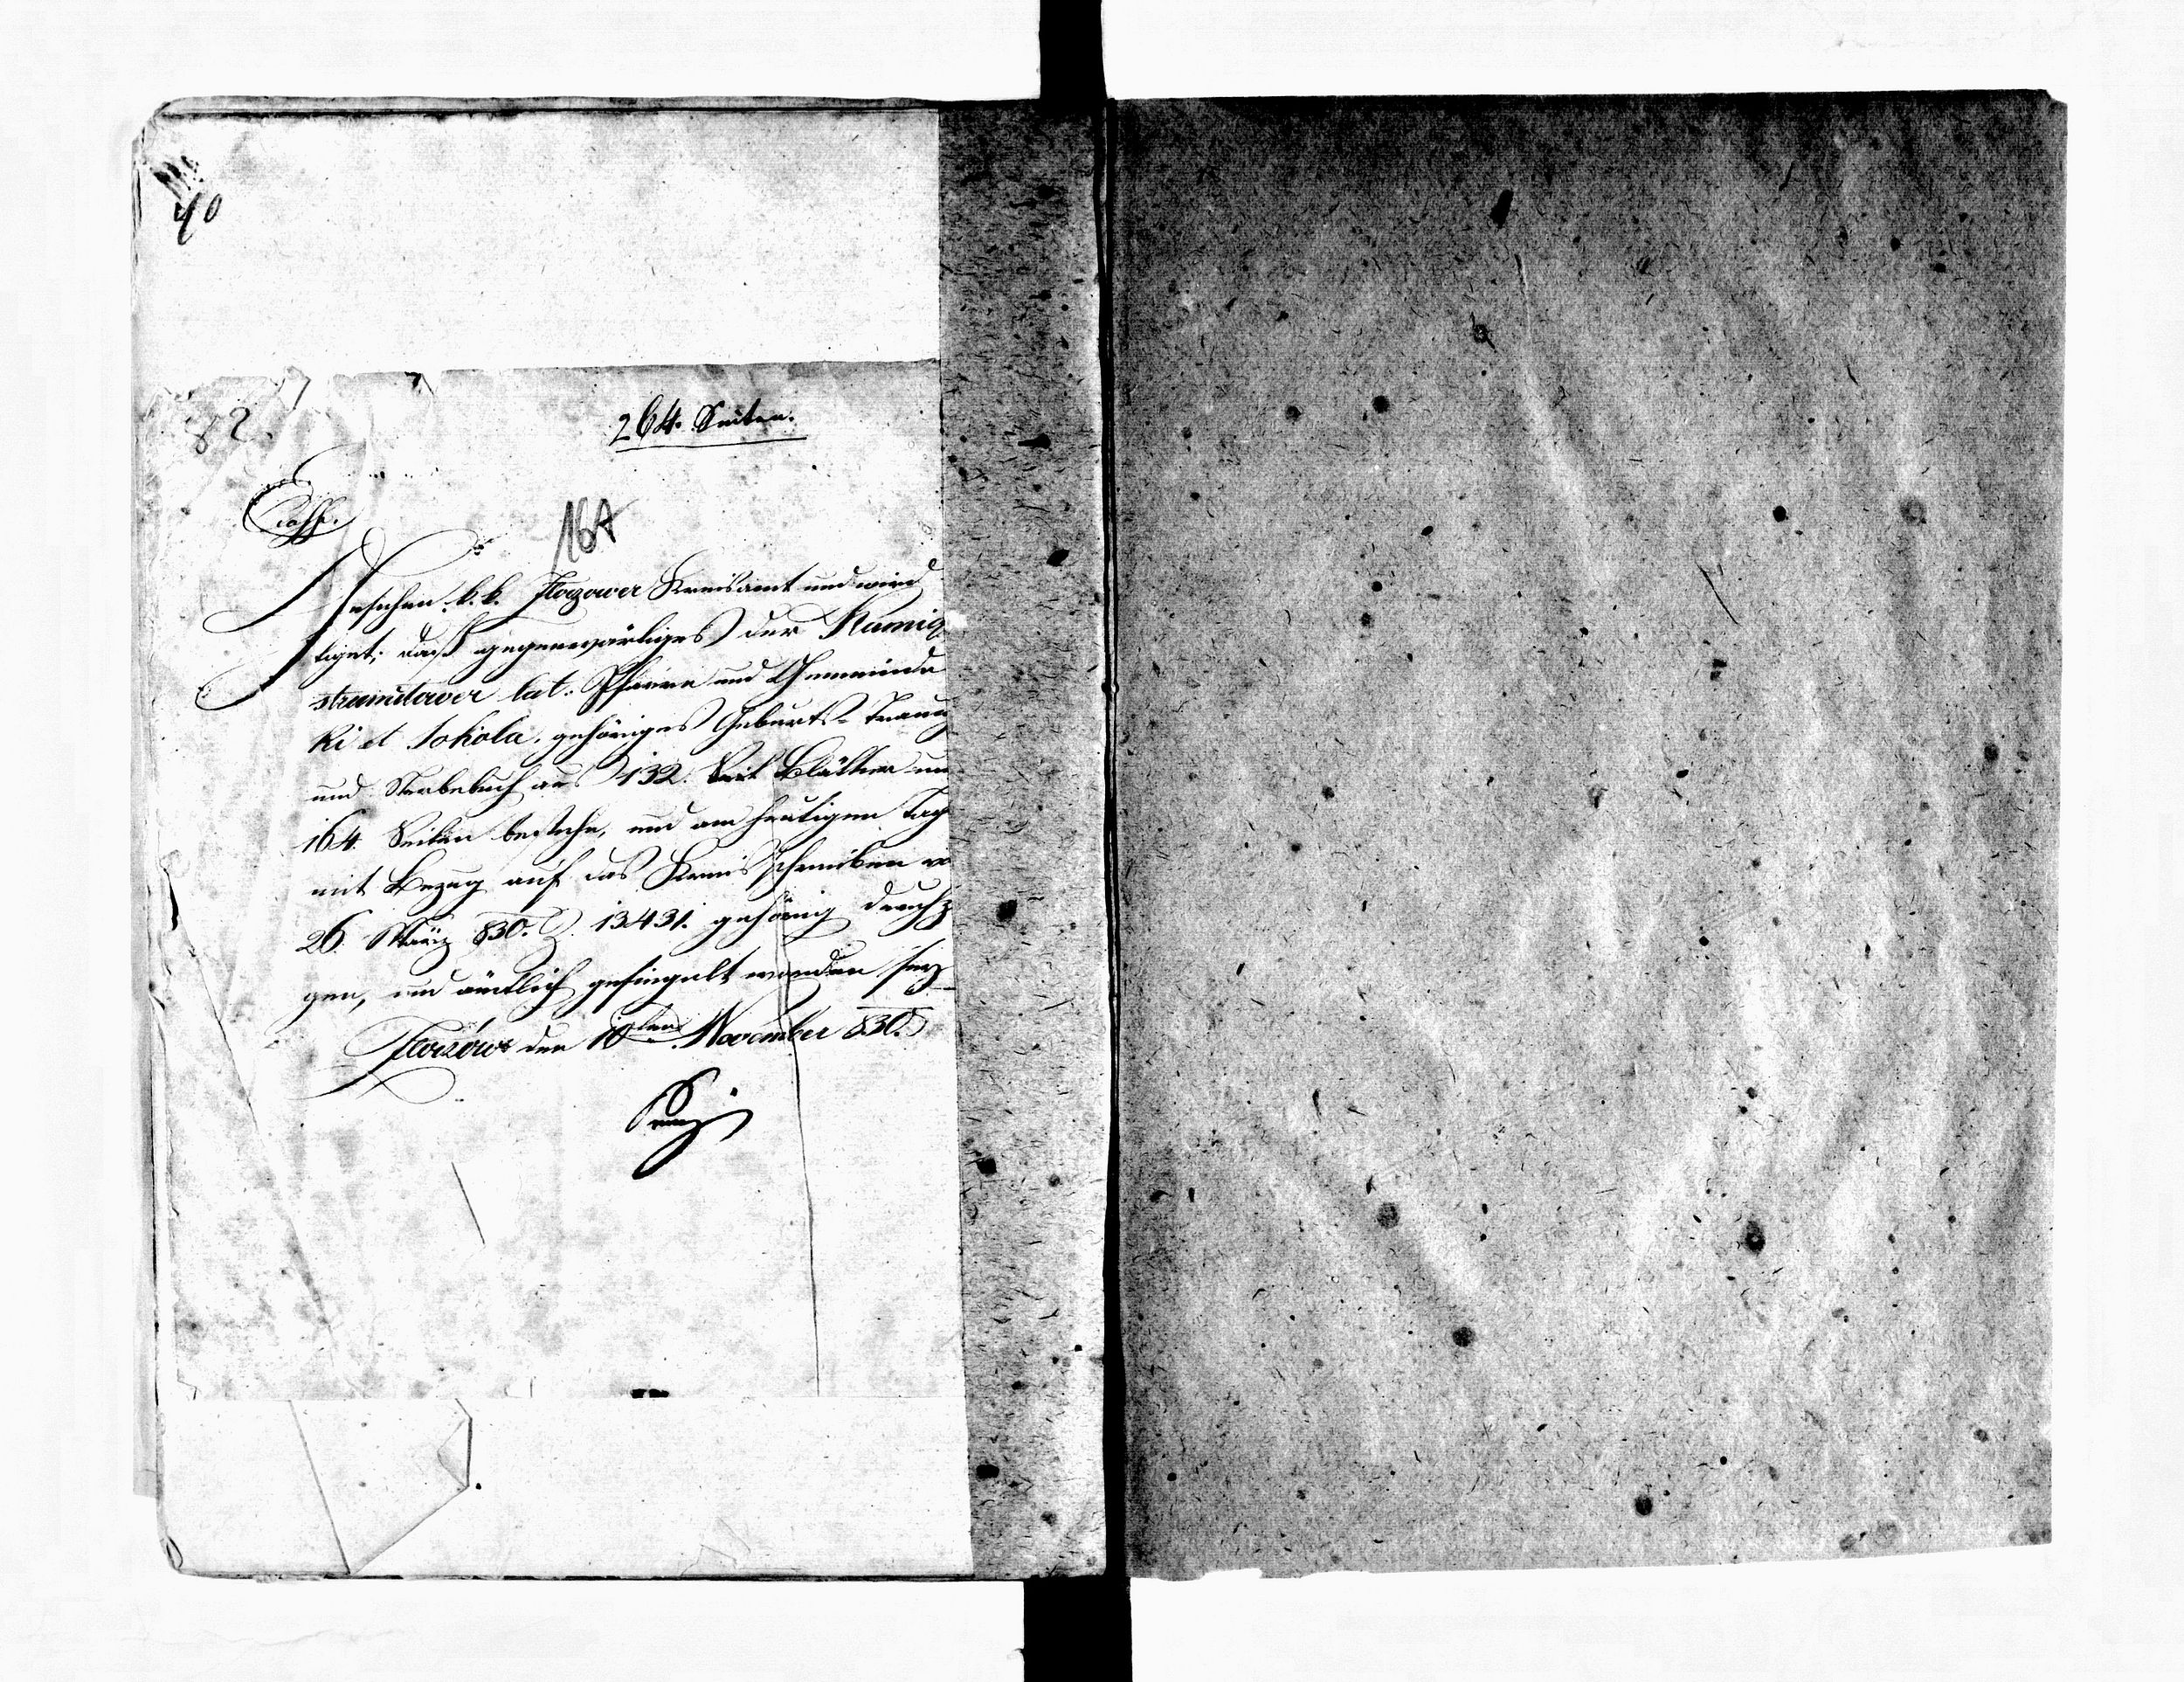 40
82
264. Seiten.
16A
Gesehen k. k. Złoczower Kreisamt und wird
tiget; daß gegenwärtiges der Kamio
strumilower lat. Pfarre und Gemeinde
ki et Sokola, gehöriges Geburts- Trauu
und Sterbebuch aus 132. Blätter un
164. Seiten bestehe, und am heutigen Tag
mit Bezug auf das Kreisschreiben vo
26. März 830. Z. 13431. gehörig durchz
gen, und ämtlich gesiegelt worden sey
Złoczów den 10ten November 830.